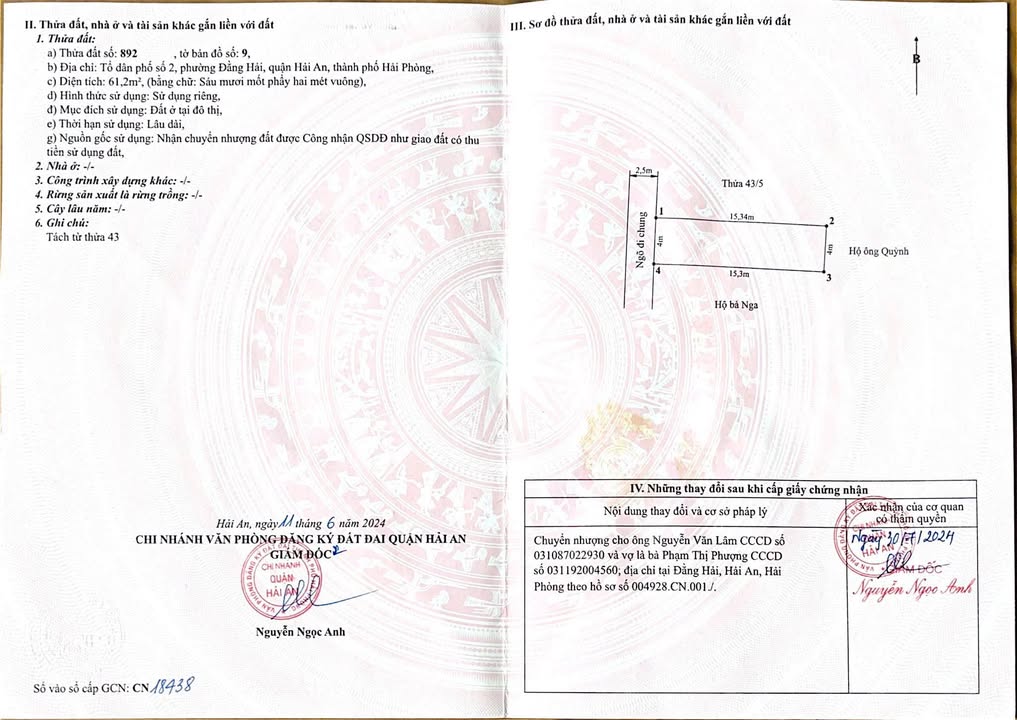 II. Thửa đất, nhà ở và tài sản khác gắn liền với đất
1. Thửa đất:
a) Thửa đất số: 892 , tờ bản đồ số: 9,
b) Địa chỉ: Tổ dân phố số 2, phường Đằng Hải, quận Hải An, thành phố Hải Phòng,
c) Diện tích: 61,2m², (bằng chữ: Sáu mươi mốt phẩy hai mét vuông),
d) Hình thức sử dụng: Sử dụng riêng,
đ) Mục đích sử dụng: Đất ở tại đô thị,
e) Thời hạn sử dụng: Lâu dài,
g) Nguồn gốc sử dụng: Nhận chuyển nhượng đất được Công nhận QSDĐ như giao đất có thu
tiền sử dụng đất,
2. Nhà ở: -/-
3. Công trình xây dựng khác: -/-
4. Rừng sản xuất là rừng trồng: -/-
5. Cây lâu năm: -/-
6. Ghi chú:
Tách từ thửa 43
Hải An, ngày 11 tháng 6 năm 2024
CHI NHÁNH VĂN PHÒNG ĐĂNG KÝ ĐẤT ĐAI QUẬN HẢI AN
GIÁM ĐỐC
CHI NHÁNH
QUẬN
HẢI AN
Nguyễn Ngọc Anh
Số vào sổ cấp GCN: CN 18438
III. Sơ đồ thửa đất, nhà ở và tài sản khác gắn liền với đất
B
2,5m
Thửa 43/5
Ngõ đi chung
1
15,34m
2
4m
4m
Hộ ông Quỳnh
4
15,3m
3
Hộ bà Nga
IV. Những thay đổi sau khi cấp giấy chứng nhận
Nội dung thay đổi và cơ sở pháp lý
Xác nhận của cơ quan
có thẩm quyền
Chuyển nhượng cho ông Nguyễn Văn Lâm CCCD số
031087022930 và vợ là bà Phạm Thị Phượng CCCD
số 031192004560; địa chỉ tại Đằng Hải, Hải An, Hải
Phòng theo hồ sơ số 004928.CN.001./.
Ngày 30/7/2024
HẢI AN
GIÁM ĐỐC
Nguyễn Ngọc Anh